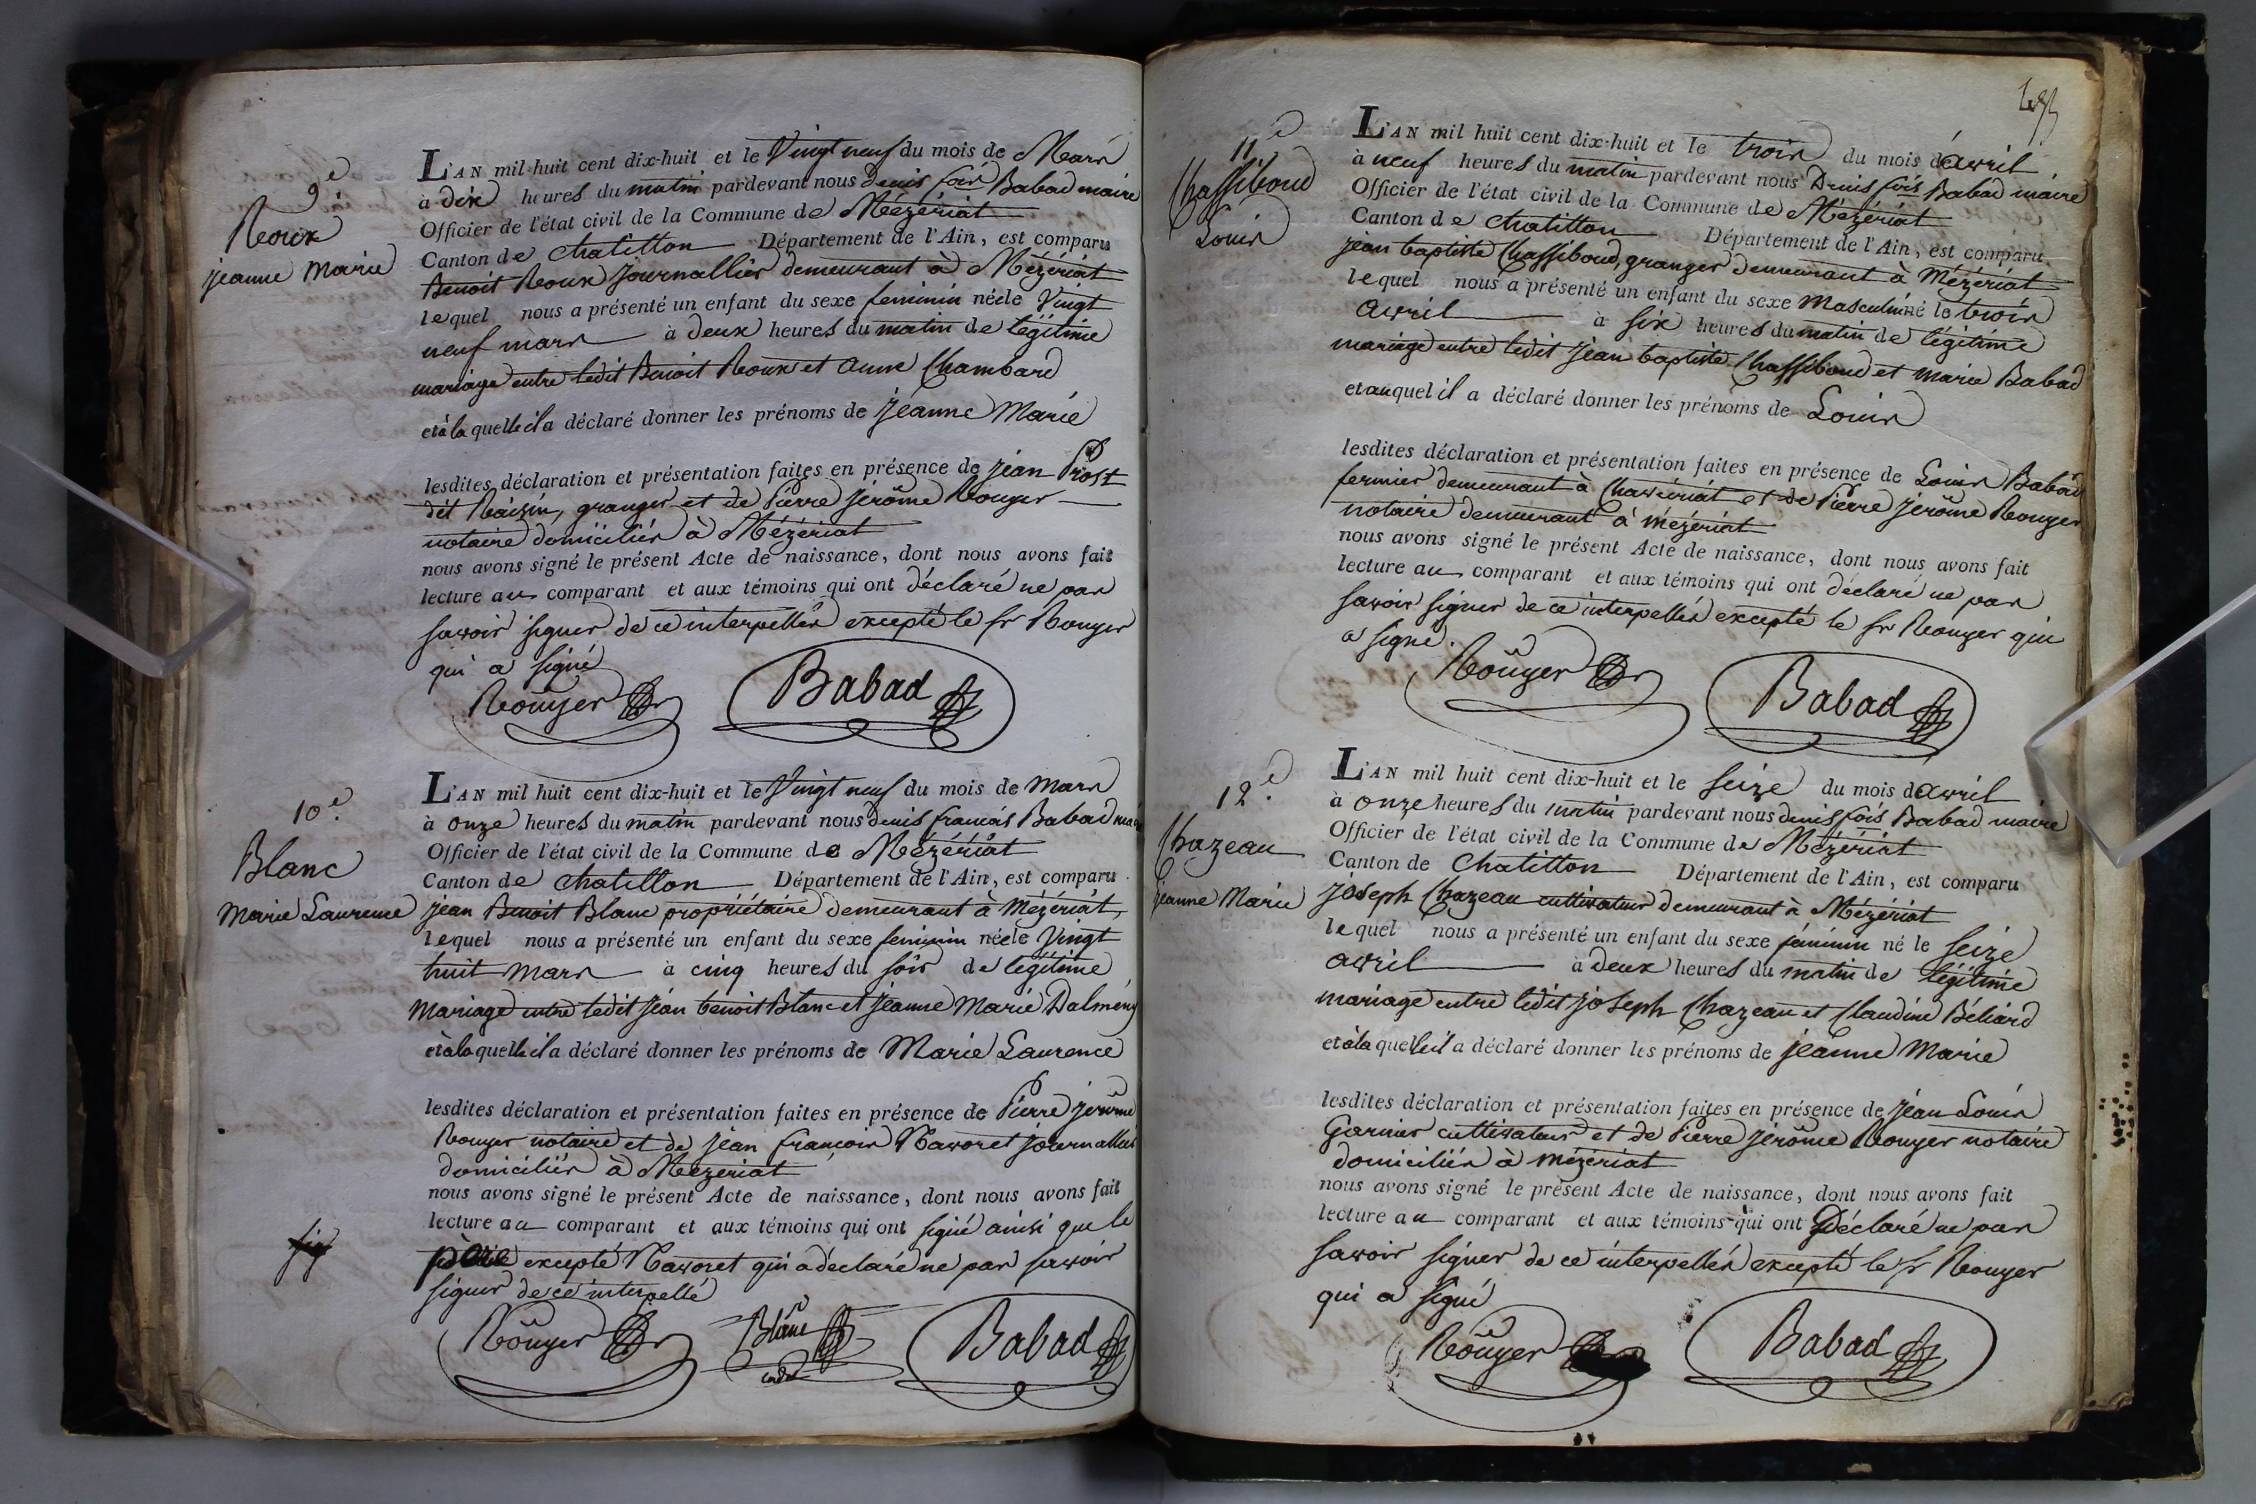 9e
Roux
jeanne Marie
L'AN mil huit cent dix-huit et le Vingt neuf du mois de Mars
à dix heures du matin pardevant nous denis fois Babad maire
Officier de l'état civil de la Commune de Mézériat
Canton de chatillon Département de l'Ain, est comparu
Benoit Roux journallier demeurant à Mézériat
lequel nous a présenté un enfant du sexe feminin née le Vingt
neuf mars à deux heures du matin de légitime
mariage entre ledit Benoit Roux et anne Chambard
et à la quelle il a déclaré donner les prénoms de jéanne Marie
lesdites déclaration et présentation faites en présence de jéan Prost
dit Raisin, granger et de Pierre jérôme Rouyer
notaire domiciliés à Mézériat
nous avons signé le présent Acte de naissance, dont nous avons fait
lecture au comparant et aux témoins qui ont déclaré ne pas
savoir signer de ce interpellés excepté le sr Rouyer
qui a signé
Rouyer Babad
10e.
Blanc
Marie Laurence
L'AN mil huit cent dix-huit et le Vingt neuf du mois de mars
à onze heures du matin pardevant nous denis francois Babad
Officier de l'état civil de la Commune de Mézériat
Canton de chatillon Département de l'Ain, est comparu
jean Benoit Blanc propriétaire demeurant à Mézériat,
lequel nous a présenté un enfant du sexe feminin née le Vingt
huit mars à cinq heures du soir de légitime
Mariage entre ledit jéan benoit Blanc et jeanne Marie Dalmény
et à la quelle il a déclaré donner les prénoms de Marie Laurence
lesdites déclaration et présentation faites en présence de Pierre jérôme
Rouyer notaire et de jéan françois Navoret journallier
domiciliés à Mézériat
nous avons signé le présent Acte de naissance, dont nous avons fait
lecture au comparant et aux témoins qui ont signé ainsi que le
père excepté Navoret qui a déclaré ne pas savoir
signer de ce interpellé
Rouyer Blanc cadet Babad
11e
Chassiboud
Louis
L'AN mil huit cent dix-huit et le trois du mois d'avril
à neuf heures du matin pardevant nous Denis fois Babad maire
Officier de l'état civil de la Commune de Mézériat
Canton de chatillon Département de l'Ain, est comparu
jéan baptiste Chassiboud, granger demeurant à Mézériat
lequel nous a présenté un enfant du sexe Masculin né le trois
avril à six heures du matin de légitime
mariage entre ledit jéan baptiste Chassiboud et marie Babad
et auquel il a déclaré donner les prénoms de Louis
lesdites déclaration et présentation faites en présence de Louis Babad
fermier demeurant à Chavériat et de Pierre jérôme Rouyer
notaire demeurant à mézériat
nous avons signé le présent Acte de naissance, dont nous avons fait
lecture au comparant et aux témoins qui ont déclaré ne pas
savoir signer de ce interpellés excepté le sr Rouyer qui
a signé.
Rouyer Babad
12e.
Chazeau
jeanne Marie
L'AN mil huit cent dix-huit et le seize du mois d'avril
à onze heures du matin pardevant nous denis fois Babad maire
Officier de l'état civil de la Commune de Mézériat
Canton de Chatillon Département de l'Ain, est comparu
joseph Chazeau cultivateur demeurant à Mézériat
lequel nous a présenté un enfant du sexe féminin né le seize
avril à deux heures du matin de légitime
mariage entre ledit joseph Chazeau et Claudine Béliard
et à la quelle il a déclaré donner les prénoms de jéanne Marie
lesdites déclaration et présentation faites en présence de jéan Louis
Garnier cultivateur et de Pierre jérôme Rouyer notaire
domiciliés à mézériat
nous avons signé le présent Acte de naissance, dont nous avons fait
lecture au comparant et aux témoins qui ont Déclaré ne pas
savoir signer de ce interpellés excepté le sr Rouyer
qui a signé
Rouyer Babad